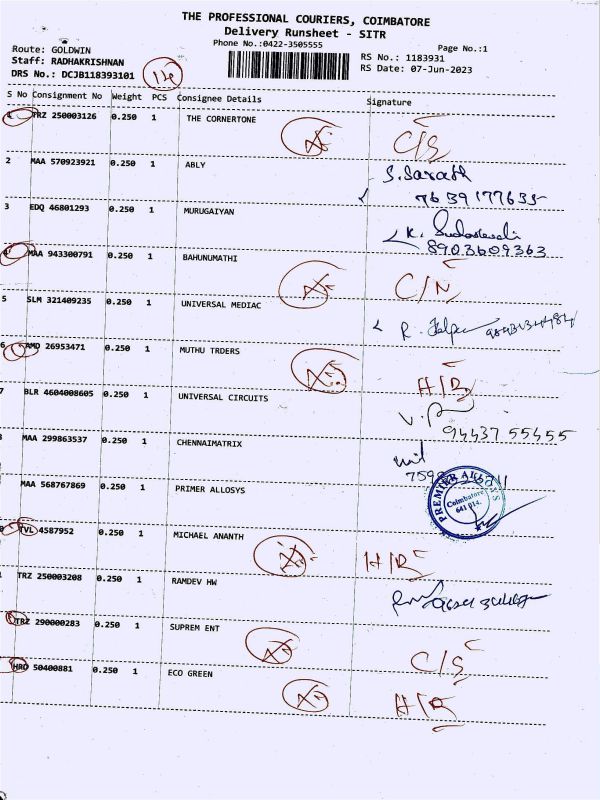 THE PROFESSIONAL COURIERS, COIMBATORE
Delivery Runsheet - SITR
Phone No.:0422-3505555
Page No.:1
Route: GOLDWIN
RS No.: 1183931
Staff: RADHAKRISHNAN
RS Date: 07-Jun-2023
DRS No.: DCJB118393101
14
S No Consignment No Weight PCS Consignee Details Signature
TRZ 250003126 0.250 1 THE CORNERTONE C/S
2 MAA 570923921 0.250 1 ABLY S.Sarath
7639177635
3 EDQ 46801293 0.250 1 MURUGAIYAN K.
8903609363
4 MAA 943300791 0.250 1 BAHUNUMATHI C/N
5 SLM 321409235 0.250 1 UNIVERSAL MEDIAC R.
6 AMD 26953471 0.250 1 MUTHU TRDERS H/R
7 BLR 4604008605 0.250 1 UNIVERSAL CIRCUITS
94437 55455
MAA 299863537 0.250 1 CHENNAIMATRIX
MAA 568767869 0.250 1 PRIMER ALLOSYS
PREMIER ALLOYS
Coimbatore
641 014.
TVL 4587952 0.250 1 MICHAEL ANANTH H/R
TRZ 250003208 0.250 1 RAMDEV HW
TRZ 290000283 0.250 1 SUPREM ENT C/S
HRO 50400881 0.250 1 ECO GREEN H/R